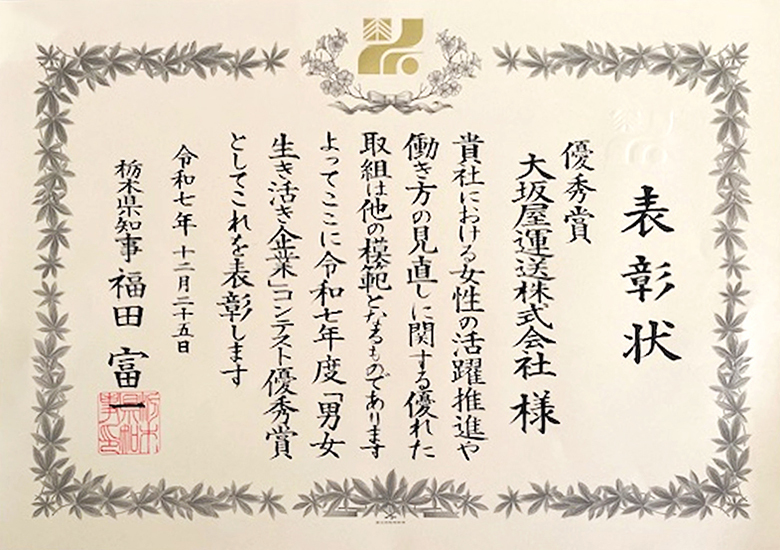 表彰状
優秀賞
大坂屋運送株式会社 様
貴社における女性の活躍推進や
働き方の見直しに関する優れた
取組は他の模範となるものであります
よってここに令和七年度「男女
生き活き企業」コンテスト優秀賞
としてこれを表彰します
令和七年 十二月二十五日
栃木県知事 福田 富一